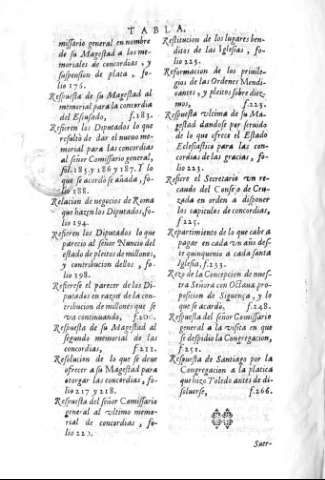 TABLA.
missario general en nombre
de su Magestad a los me-
moriales de concordias, y
suspension de plata, fo-
lio 176.
Respuesta de su Magestad al
memorial para la concordia
del Escusado, f.183.
Refieren los Diputados lo que
resultò de dar el nuevo me-
morial para las concordias
al señor Comissario general,
fol. 185. y 186 y 187. Y lo
que se acordò se añada, fo-
lio 188.
Relacion de negocios de Roma
que hazen los Diputados, fo-
lio 194.
Refieren los Diputados lo que
pareciò al señor Nuncio del
estado de pleitos de millones,
y contribucion dellos, fo-
lio 198.
Refierese el parecer de los Di-
putados en razon de la con-
tribucion de millones que se
va continuando, f.200.
Respuesta de su Magestad al
segundo memorial de las
concordias, f.211.
Resolucion de lo que se deve
ofrecer a su Magestad para
otorgar las concordias, fo-
lio 217 y 218.
Respuesta del señor Comissario
general al ultimo memo-
rial de concordias, fo-
lio 220.
Restitucion de los lugares ben-
ditos de las Iglesias, fo-
lio 223.
Reformacion de los privile-
gios de las Ordenes Mendi-
cantes, y pleitos sobre diez-
mos, f.223.
Respuesta ultima de su Ma-
gestad dandose por servido
de lo que ofrece el Estado
Eclesiastico para las con-
cordias de las gracias, fo-
lio 223.
Refiere el Secretario un re-
caudo del Consejo de Cru-
zada en orden a disponer
los capitulos de concordias,
f.225.
Repartimiento de lo que cabe a
pagar en cada un año des-
te quinquenio a cada santa
Iglesia, f.231.
Rezo de la Concepcion de nues-
tra Señora con Octava pro-
posicion de Siguença, y lo
que se acordò, f.248.
Respuesta del señor Comissario
general a la visita en que
se despidio la Congregacion,
f.251.
Respuesta de Santiago por la
Congregacion a la platica
que hizo Toledo antes de di-
solverse, f.266.
Suer-